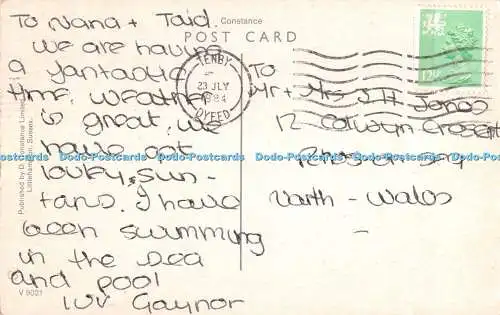 Constance
POST CARD
To Nana + Taid.
we are having
a fantastic
time. weather
is great. we
have got
lovley sun-
tans. I have
been swimming
in the sea
and pool
luv Gaynor
TENBY
23 JLY
1984
DYFED
12½
To
Mr + Mrs J H Jones
12 Colwyn Crescent
north - wales
Published by D. Constance Limited
Littlehampton, Sussex.
V 9021
Dodo-Postcards Dodo-Postcards Dodo-Postcards Dodo-Postcards Dodo-Postcards